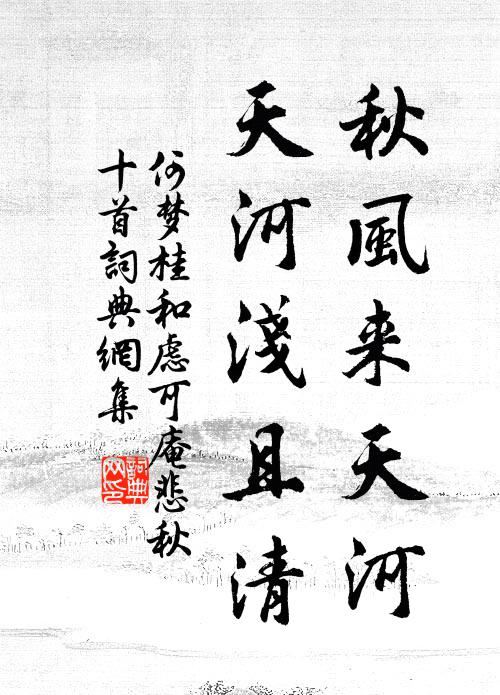 秋風来天河
天河淺且清
何梦桂和慮可庵悲秋
十首詞典網集
詞典
网印